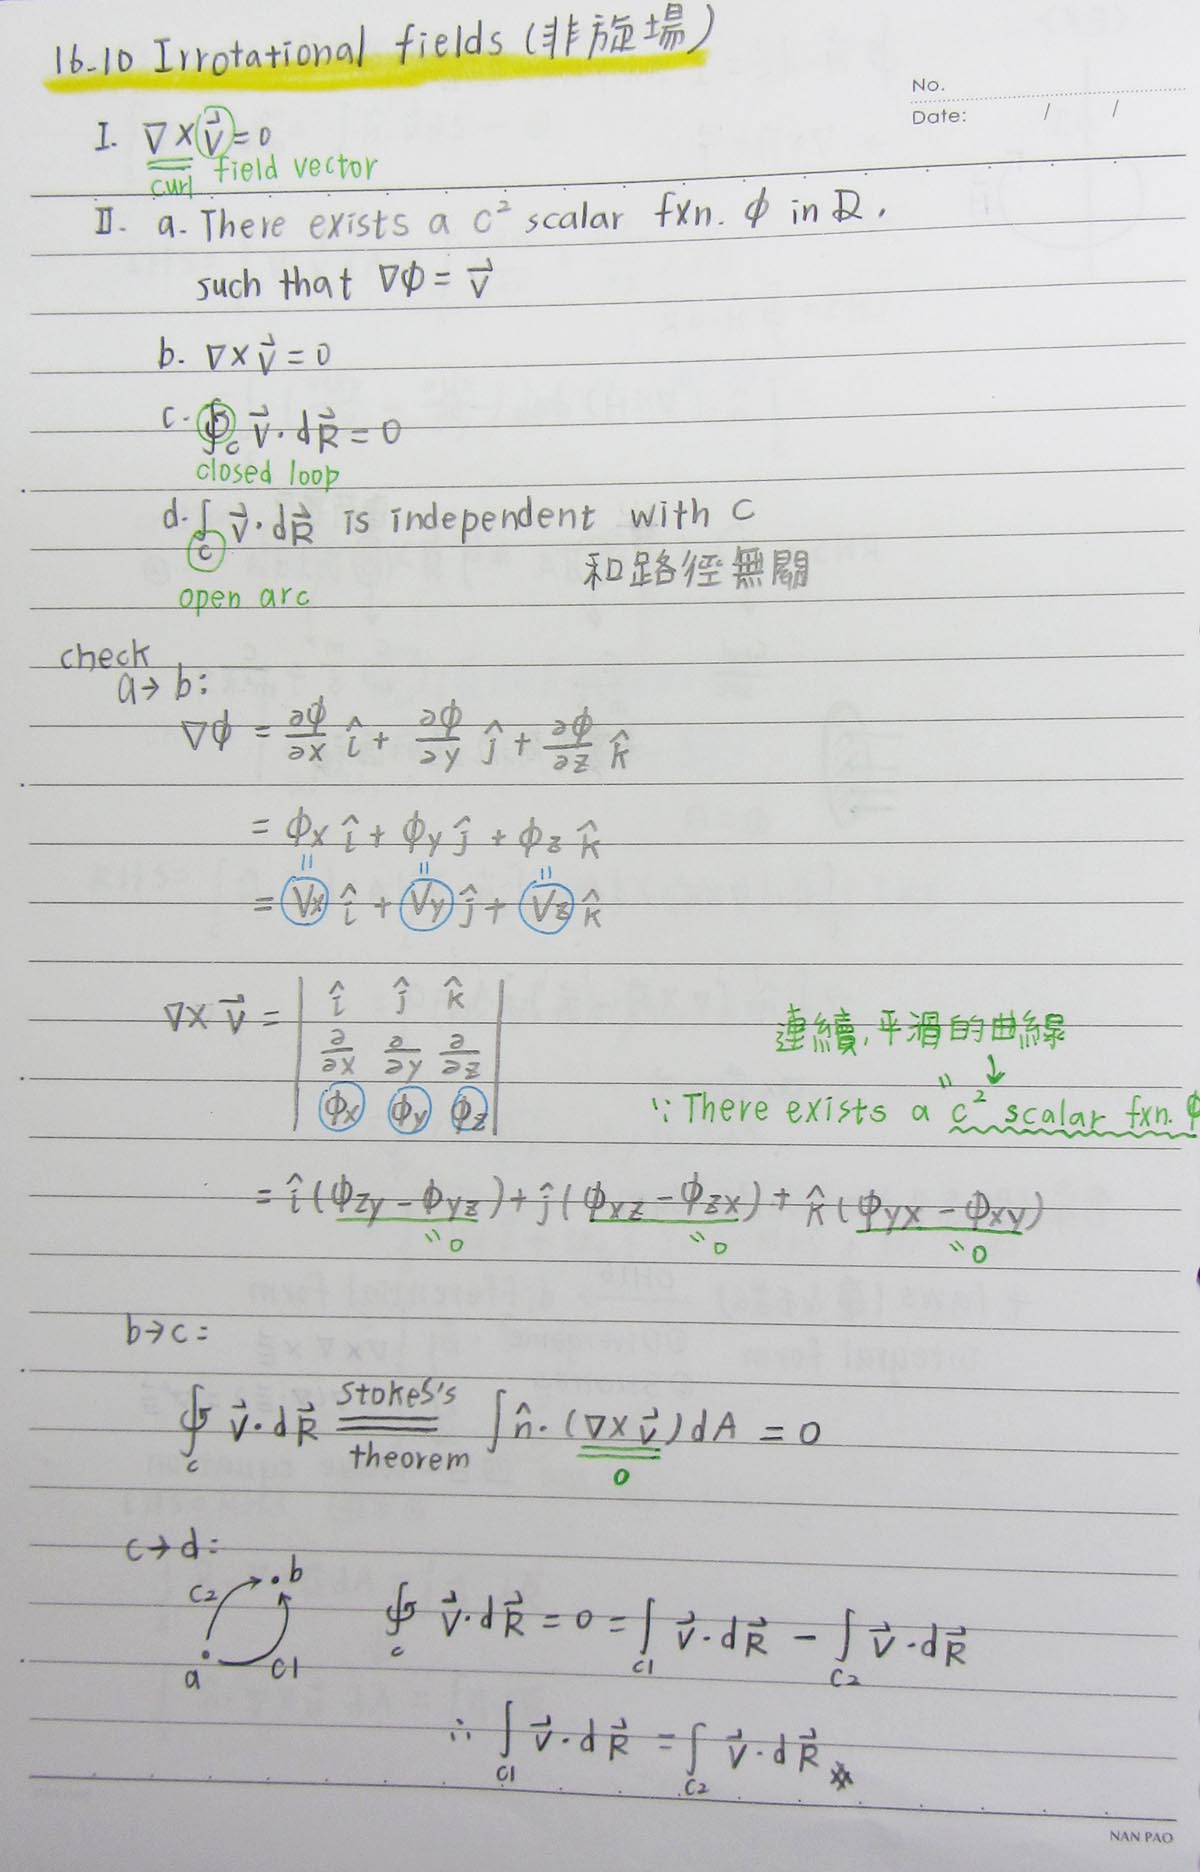 16-10 Irrotational fields (非旋場)
No.
Date: / /
I. ∇×V⃗=0
curl field vector
II. a. There exists a c² scalar fxn. φ in D.
such that ∇φ=V⃗
b. ∇×V⃗=0
c. ∮c V⃗·dR⃗=0
closed loop
d. ∫c V⃗·dR⃗ is independent with C
open arc
和路徑無關
check
a→b:
∇φ = ∂φ/∂x î + ∂φ/∂y ĵ + ∂φ/∂z k̂
= φx î + φy ĵ + φz k̂
= Vx î + Vy ĵ + Vz k̂
∇×V⃗ = | î ĵ k̂
∂/∂x ∂/∂y ∂/∂z
φx φy φz |
連續,平滑的曲線
∵ There exists a "c² scalar fxn. φ
= î(φzy-φyz)+ĵ(φxz-φzx)+k̂(φyx-φxy)
"0 "0 "0
b→c:
∮c V⃗·dR⃗ Stokes's theorem ∫n̂·(∇×V⃗)dA = 0
0
c→d:
a b C1 C2
∮c V⃗·dR⃗ = 0 = ∫C1 V⃗·dR⃗ - ∫C2 V⃗·dR⃗
∴ ∫C1 V⃗·dR⃗ = ∫C2 V⃗·dR⃗ ※
NAN PAO